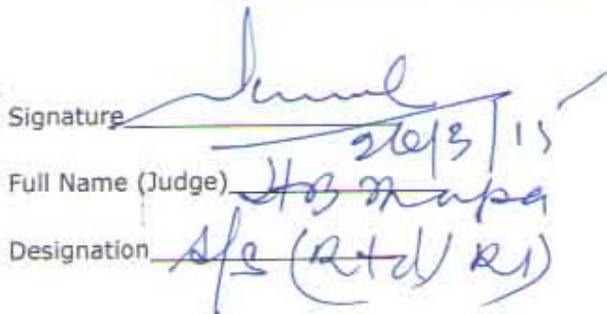 Signature
26/3/15
Full Name (Judge) HB Mapa
Designation A/S (Rtd/ RI)